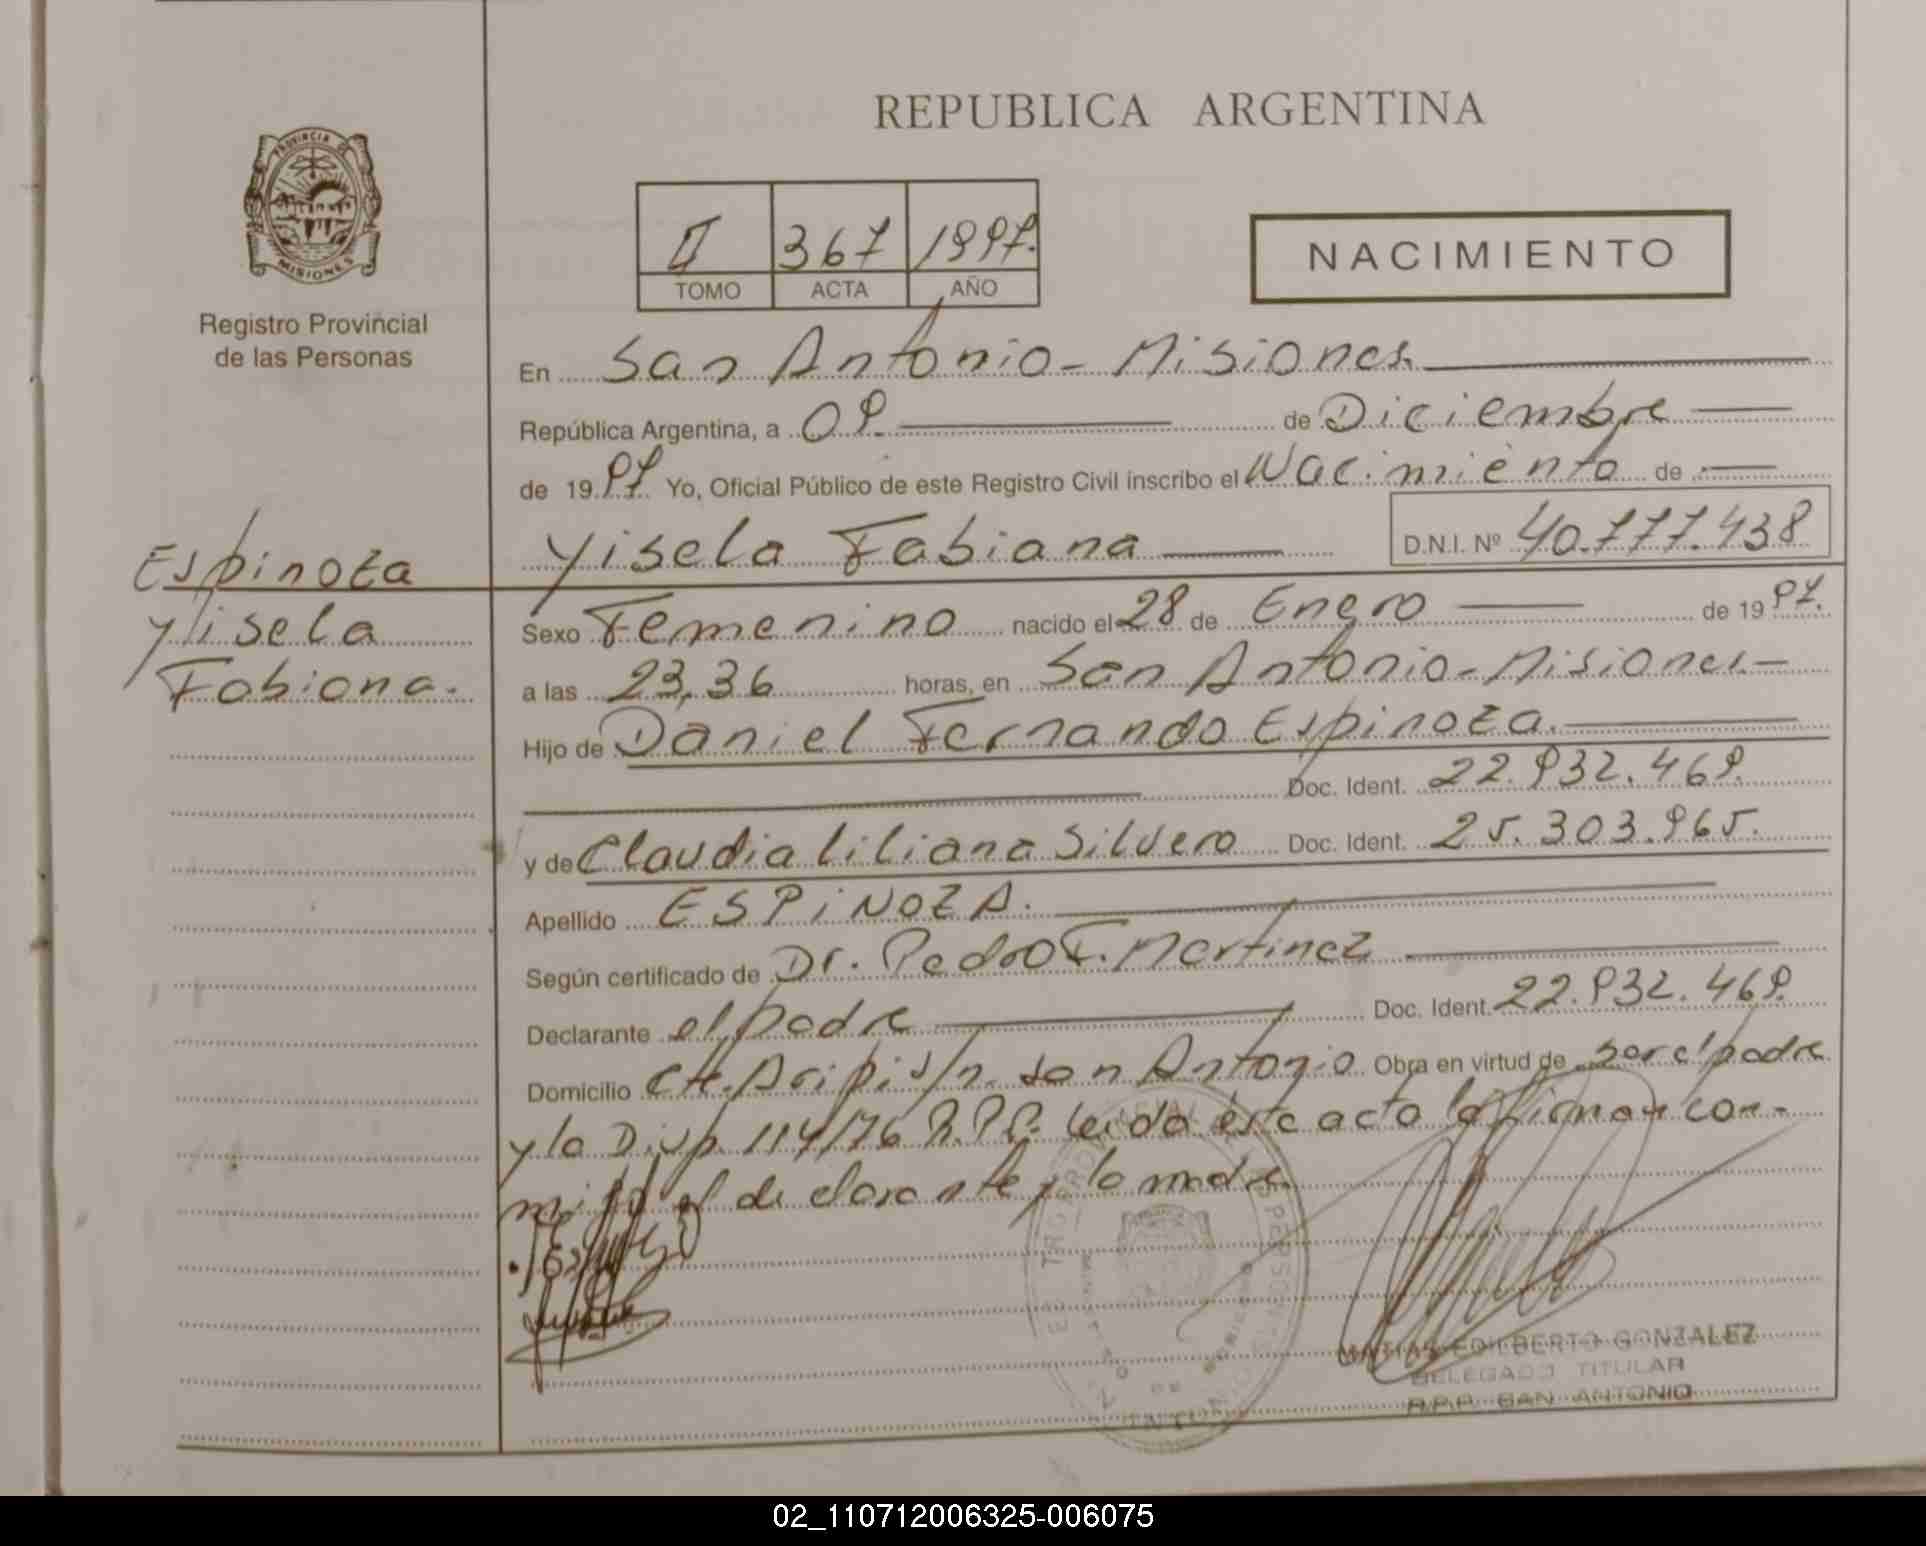 REPUBLICA ARGENTINA
PROVINCIA DE
MISIONES
Registro Provincial
de las Personas
II 367 1997.
TOMO ACTA AÑO
NACIMIENTO
En San Antonio - Misiones.
República Argentina, a 09. de Diciembre
de 1997. Yo, Oficial Público de este Registro Civil inscribo el Nacimiento de
Yisela Fabiana D.N.I. Nº 40.777.438
Espinoza
Yisela
Fabiana.
Sexo Femenino nacido el 28 de Enero de 1997.
a las 23,36 horas, en San Antonio - Misiones -
Hijo de Daniel Fernando Espinoza.
Doc. Ident. 22.932.469.
y de Claudia Liliana Silvero Doc. Ident. 25.303.965.
Apellido ESPINOZA.
Según certificado de Dr. Pedro F. Martinez
Declarante el padre Doc. Ident. 22.932.469.
Domicilio Cte. Aripi s/n. San Antonio Obra en virtud de ser el padre
y la Disp. 114/76 R.P.P. Leida este acta la firman con-
migo el declarante y la madre.
MATIAS EDILBERTO GONZALEZ
DELEGADO TITULAR
R.P.P. SAN ANTONIO
02_110712006325-006075